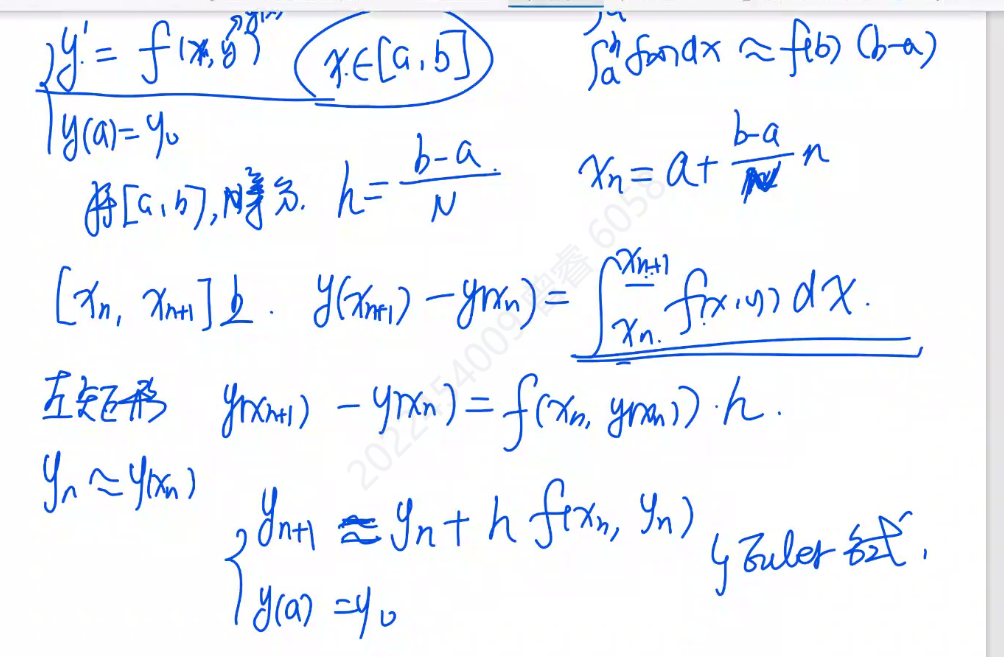 y' = f(x, y) x∈[a,b] ∫_a^b f(x)dx ≈ f(b)(b-a)
y(a)=y₀
将[a,b],N等分. h = (b-a)/N x_n = a + (b-a)/N n
[x_n, x_{n+1}]上. y(x_{n+1}) - y(x_n) = ∫_{x_n}^{x_{n+1}} f(x,y) dx.
左矩形 y(x_{n+1}) - y(x_n) = f(x_n, y(x_n))·h.
y_n ≈ y(x_n)
y_{n+1} ≈ y_n + h f(x_n, y_n)
Euler 公式.
y(a) = y₀